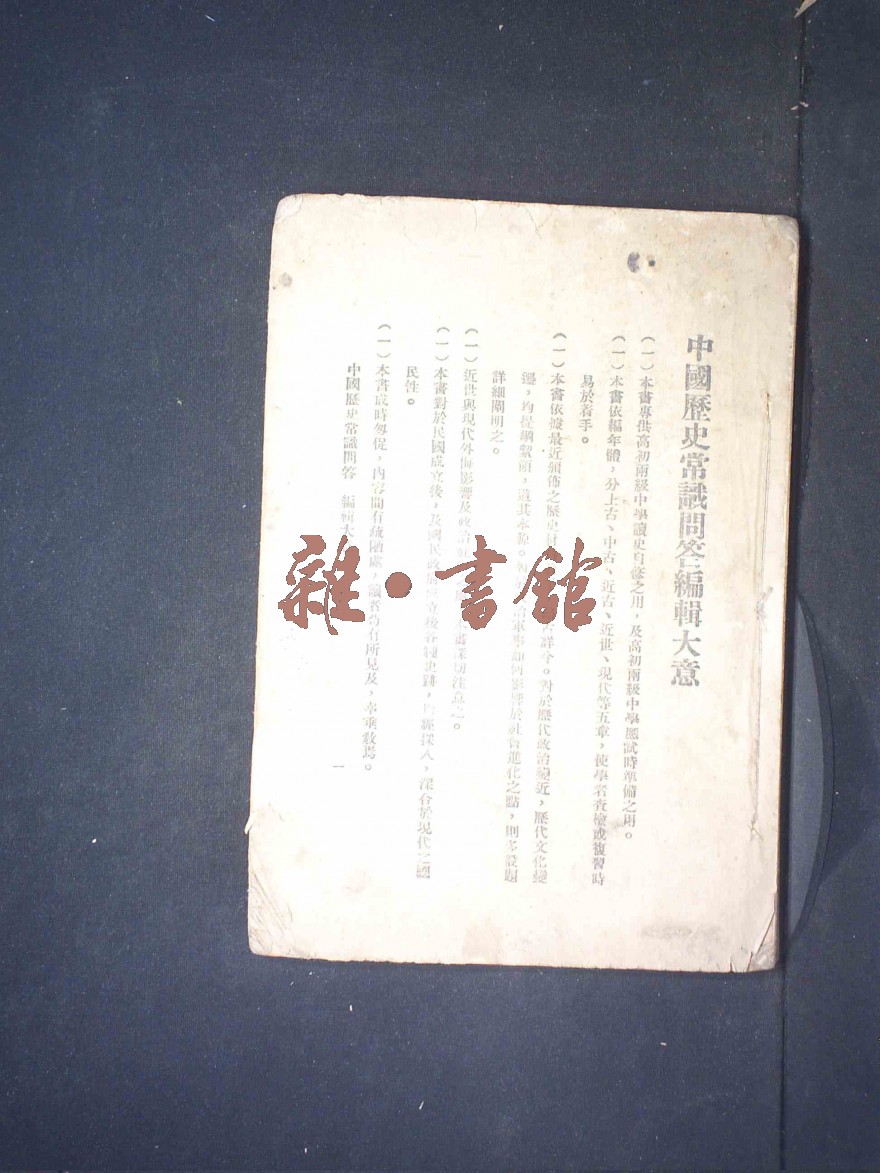 中國歷史常識問答編輯大意
（一）本書專供高初兩級中學讀史自修之用，及高初兩級中學應試時準備之用。
（一）本書依編年體，分上古、中古、近古、近世、現代等五章，使學者查檢或複習時
易於着手。
（一）本書依據最近頒佈之歷史 詳今。對於歷代政治 近，歷代文化變
遷，均提綱絜領，道其本源。 於社會進化之點，則多設題
詳細闡明之。
（一）近世與現代外侮影響及政治 深切注意之。
（一）本書對於民國成立後，及國民政府成立後各種史蹟，均經採入，深合於現代之國
民性。
（一）本書成時匆促，內容間有疏陋處，讀者尚有所見及，幸垂教焉。
中國歷史常識問答 編輯大 一
雜·書館